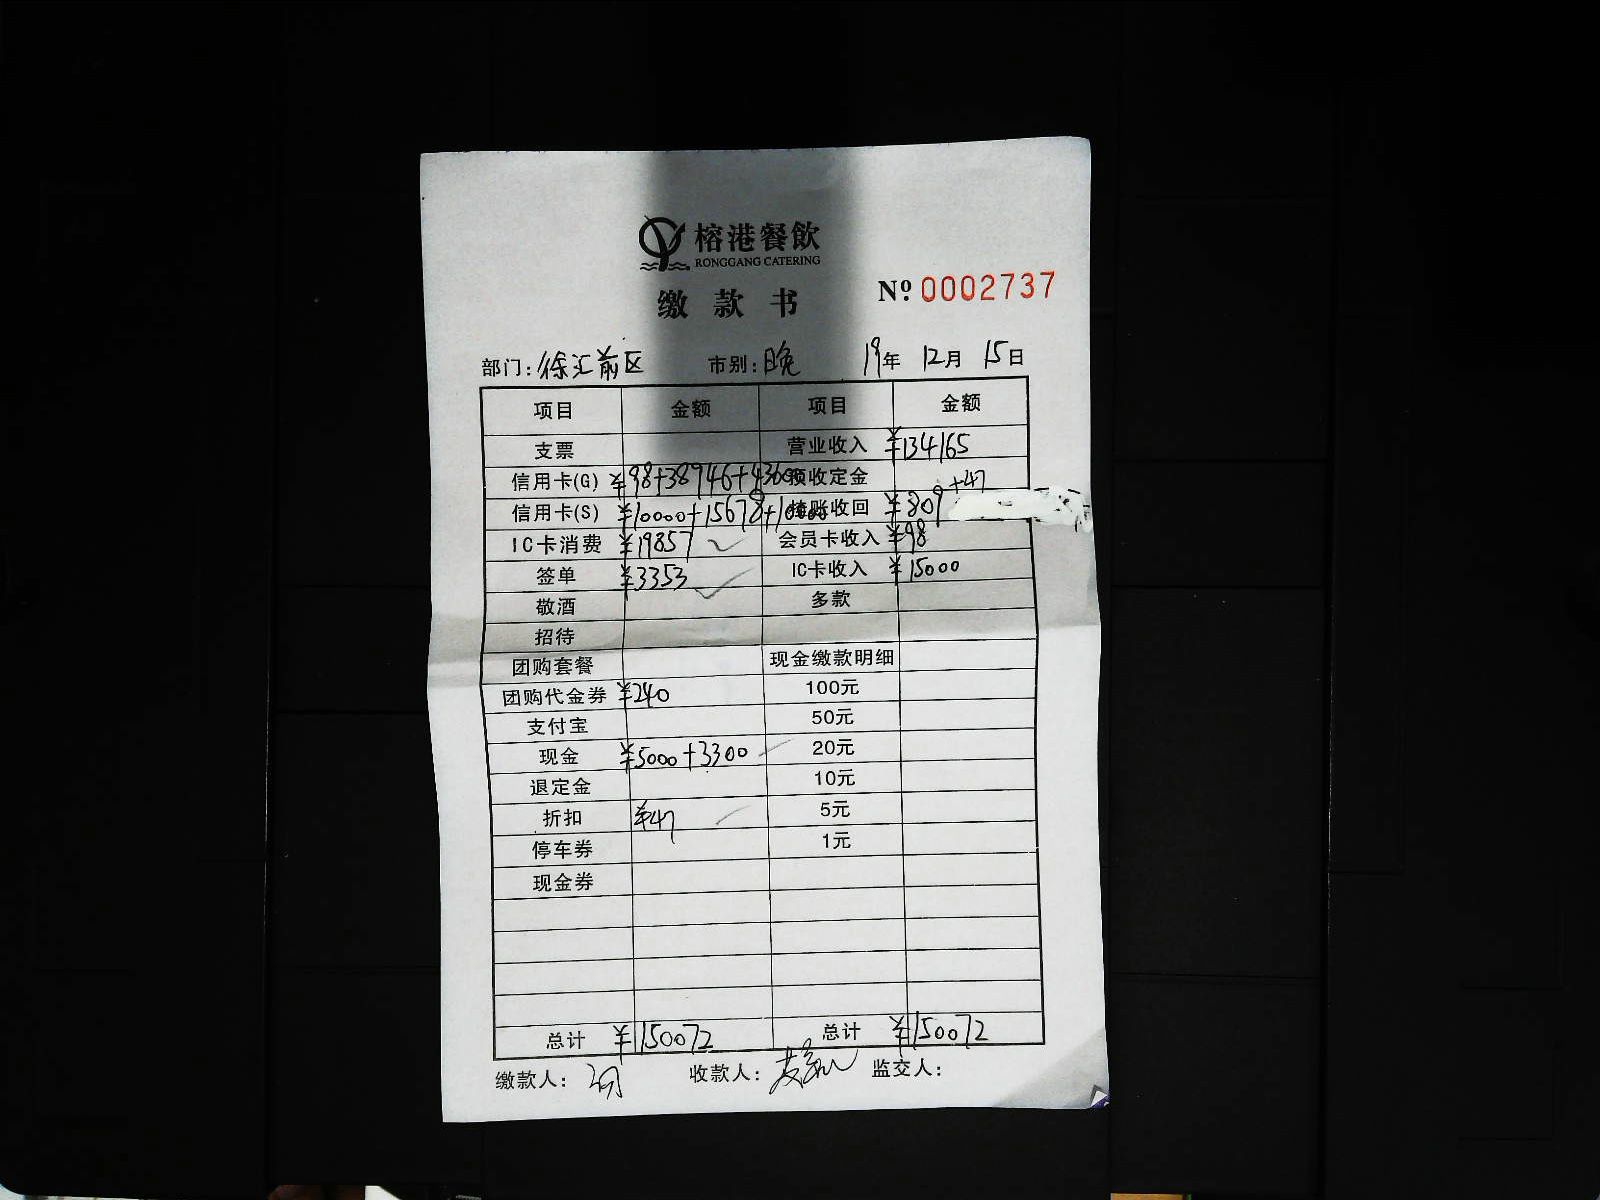 榕港餐飲
RONGGANG CATERING
缴款书 Nº 0002737
部门：徐汇前区 市别：晚 19年 12月 15日
项目 金额 项目 金额
支票 营业收入 ¥134165
信用卡(G) ¥98+38946+43600 预收定金
信用卡(S) ¥10000+15678+10000 挂账收回 ¥809+47
IC卡消费 ¥19857 会员卡收入 ¥98
签单 ¥3353 IC卡收入 ¥15000
敬酒 多款
招待
团购套餐 现金缴款明细
团购代金券 ¥240 100元
支付宝 50元
现金 ¥5000+3300 20元
退定金 10元
折扣 ¥47 5元
停车券 1元
现金券
总计 ¥150072 总计 ¥150072
缴款人： 收款人： 监交人：